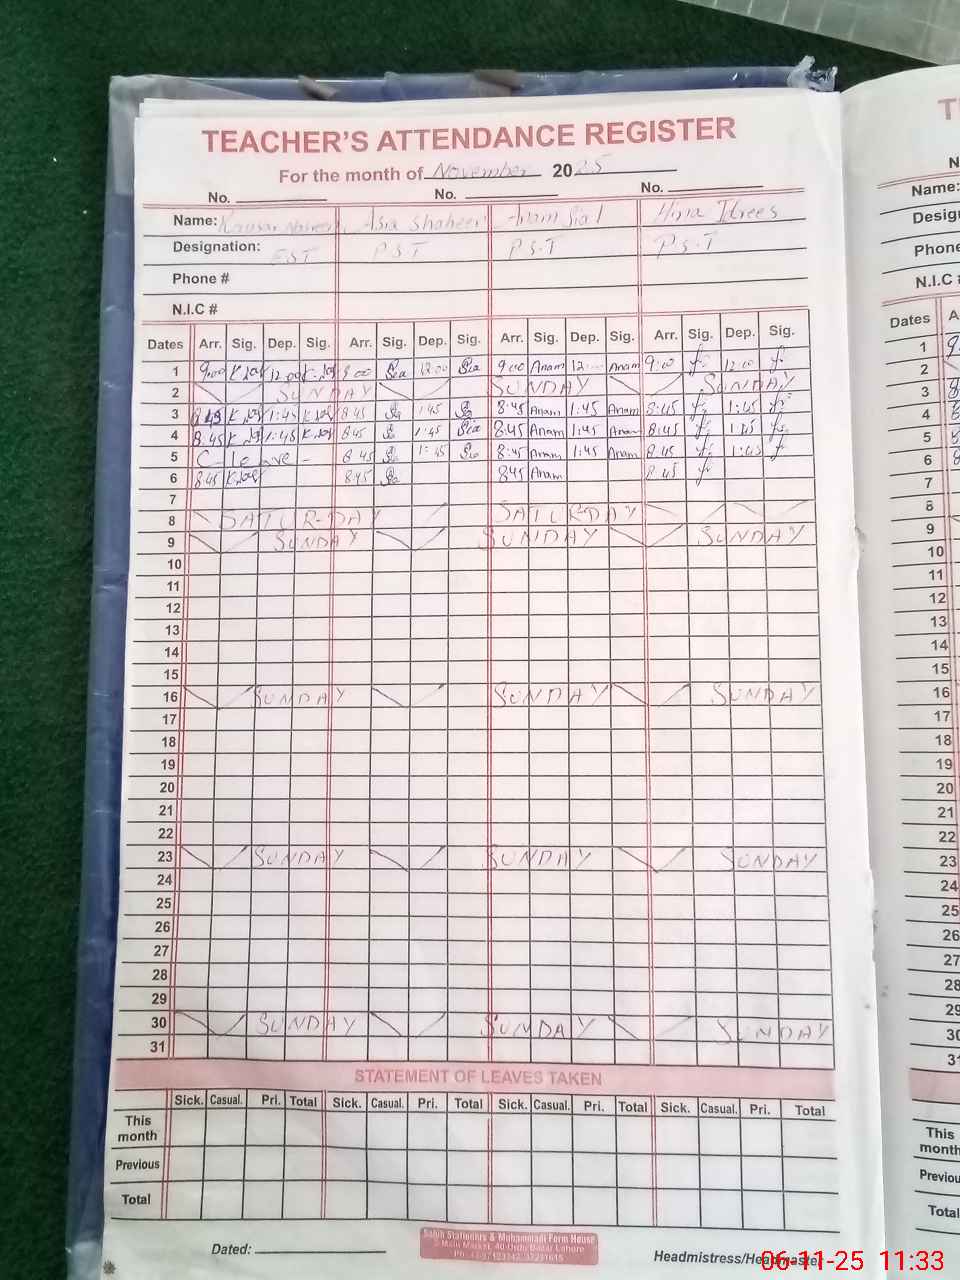 TEACHER'S ATTENDANCE REGISTER
For the month of November 2025
No. No. No.
Name: Kausar Asia Shaheen Anam Sial Hina Idrees
Designation: EST P.S.T P.S.T P.S.T
Phone #
N.I.C #
Dates Arr. Sig. Dep. Sig. Arr. Sig. Dep. Sig. Arr. Sig. Dep. Sig. Arr. Sig. Dep. Sig.
1 9:00 12:00 9:00 12:00 9:00 Anam 12 Anam 9:00 12:00
2 SUNDAY SUNDAY SUNDAY
3 8:45 1:45 8:45 1:45 8:45 Anam 1:45 Anam 8:45 1:45
4 8:45 1:45 8:45 1:45 8:45 Anam 1:45 Anam 8:45 1:45
5 C - leave - 8:45 1:45 8:45 Anam 1:45 Anam 8:45 1:45
6 8:45 8:45 8:45 Anam 8:45
7
8 SATUR-DAY SATURDAY
9 SUNDAY SUNDAY SUNDAY
10
11
12
13
14
15
16 SUNDAY SUNDAY SUNDAY
17
18
19
20
21
22
23 SUNDAY SUNDAY SUNDAY
24
25
26
27
28
29
30 SUNDAY SUNDAY SUNDAY
31
STATEMENT OF LEAVES TAKEN
Sick. Casual. Pri. Total Sick. Casual. Pri. Total Sick. Casual. Pri. Total Sick. Casual. Pri. Total
This month
Previous
Total
Dated:
Salih Stationers & Muhammadi Form House
Main Market, 40-Urdu Bazar Lahore
Headmistress/Headmaster
T
N
Name:
Desig
Phone
N.I.C #
Dates A
1
2
3
4
5
6
7
8
9
10
11
12
13
14
15
16
17
18
19
20
21
22
23
24
25
26
27
28
29
30
31
This
month
Previou
Total
06-11-25 11:33